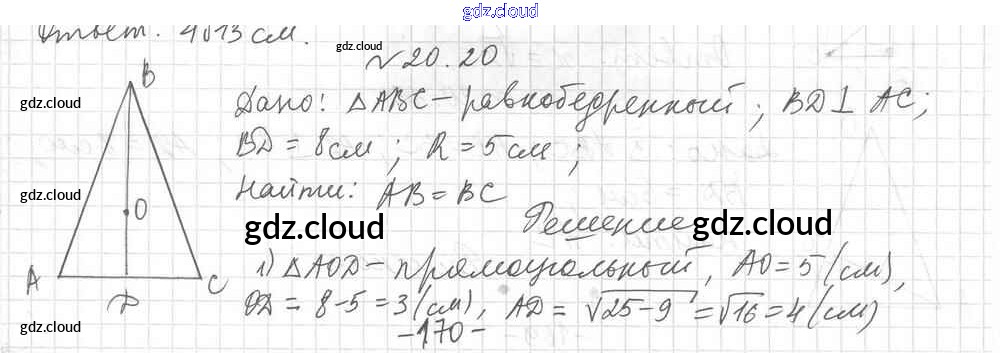 gdz.cloud
Ответ. 4√13 см.
gdz.cloud
№ 20.20
B
gdz.cloud
Дано: △ABC – равнобедренный; BD ⊥ AC;
gdz.cloud
BD = 8 см; R = 5 см;
gdz.cloud
Найти: AB = BC
O
gdz.cloud
Решение
gdz.cloud gdz.cloud
A
1) △AOD – прямоугольный, AO = 5 (см),
C
D
OD = 8 - 5 = 3 (см), AD = √25 - 9 = √16 = 4 (см)
- 170 -